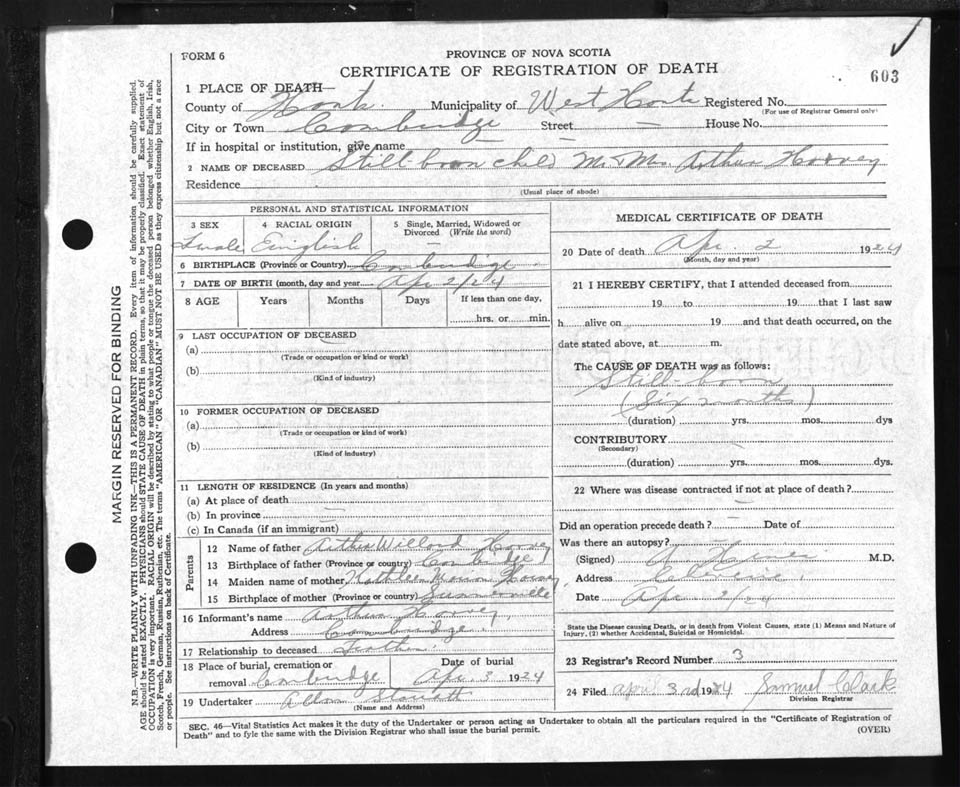 FORM 6
PROVINCE OF NOVA SCOTIA
CERTIFICATE OF REGISTRATION OF DEATH
603
1 PLACE OF DEATH—
County of Hants. Municipality of West Hants Registered No.
(For use of Registrar General only)
City or Town Cambridge Street — House No.
If in hospital or institution, give name —
2 NAME OF DECEASED Still-born child Mr & Mrs Arthur Harvey
Residence
(Usual place of abode)
PERSONAL AND STATISTICAL INFORMATION
3 SEX 4 RACIAL ORIGIN 5 Single, Married, Widowed or Divorced (Write the word)
English —
6 BIRTHPLACE (Province or Country) Cambridge
7 DATE OF BIRTH (month, day and year) Apr 2/24
8 AGE Years Months Days If less than one day,
hrs. or min.
9 LAST OCCUPATION OF DECEASED
(a)
(Trade or occupation or kind or work)
(b)
(Kind of industry)
10 FORMER OCCUPATION OF DECEASED
(a)
(Trade or occupation or kind of work)
(b)
(Kind of industry)
11 LENGTH OF RESIDENCE (In years and months)
(a) At place of death
(b) In province —
(c) In Canada (if an immigrant)
Parents
12 Name of father Arthur Willard Harvey
13 Birthplace of father (Province or country) Cambridge
14 Maiden name of mother Kathleen Harvey
15 Birthplace of mother (Province or country) Summerville
16 Informant's name Arthur Harvey
Address Cambridge.
17 Relationship to deceased Father
18 Place of burial, cremation or removal Cambridge
Date of burial Apr. 3 1924
19 Undertaker
(Name and Address)
MEDICAL CERTIFICATE OF DEATH
20 Date of death Apr. 2 1924
(Month, day and year)
21 I HEREBY CERTIFY, that I attended deceased from
19 to 19 that I last saw
h alive on 19 and that death occurred, on the
date stated above, at m.
The CAUSE OF DEATH was as follows:
Still-born
(Six months)
(duration) yrs. mos. dys
CONTRIBUTORY
(Secondary)
(duration) yrs. mos. dys.
22 Where was disease contracted if not at place of death?
—
Did an operation precede death? Date of
Was there an autopsy? —
(Signed) M.D.
Address
Date Apr 2/24
State the Disease causing Death, or in death from Violent Causes, state (1) Means and Nature of
Injury, (2) whether Accidental, Suicidal or Homicidal.
23 Registrar's Record Number 3
24 Filed April 3rd 1924 Samuel Clark
Division Registrar
SEC. 46—Vital Statistics Act makes it the duty of the Undertaker or person acting as Undertaker to obtain all the particulars required in the "Certificate of Registration of
Death" and to fyle the same with the Division Registrar who shall issue the burial permit. (OVER)
MARGIN RESERVED FOR BINDING
N.B.—WRITE PLAINLY WITH UNFADING INK—THIS IS A PERMANENT RECORD. Every item of information should be carefully supplied.
AGE should be stated EXACTLY. PHYSICIANS should STATE CAUSE OF DEATH in plain terms, so that it may be properly classified. Exact statement of
OCCUPATION is very important. RACIAL ORIGIN will be described by stating to what people or tongue the deceased person belonged whether English, Irish,
Scotch, French, German, Russian, Ruthenian, etc. The terms "AMERICAN" OR "CANADIAN" MUST NOT BE USED as they express citizenship but not a race
or people. See instructions on back of Certificate.